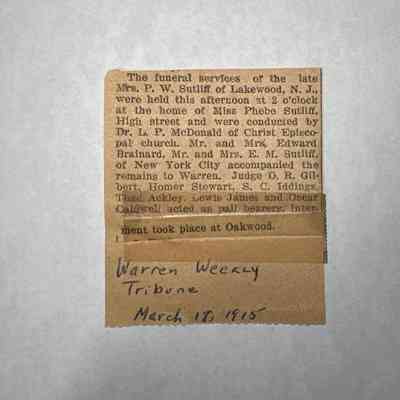 The funeral services of the late
Mrs. P. W. Sutliff of Lakewood, N. J.,
were held this afternoon at 2 o'clock
at the home of Miss Phebe Sutliff,
High street and were conducted by
Dr. L. P. McDonald of Christ Episco-
pal church. Mr. and Mrs. Edward
Brainard, Mr. and Mrs. E. M. Sutliff,
of New York City accompanied the
remains to Warren. Judge D. R. Gil-
bert, Homer Stewart, S. C. Iddings,
Thad Ackley, Lewis James and Oscar
Caldwell acted as pall bearers. Inter-
ment took place at Oakwood.
Warren Weekly
Tribune
March 1915